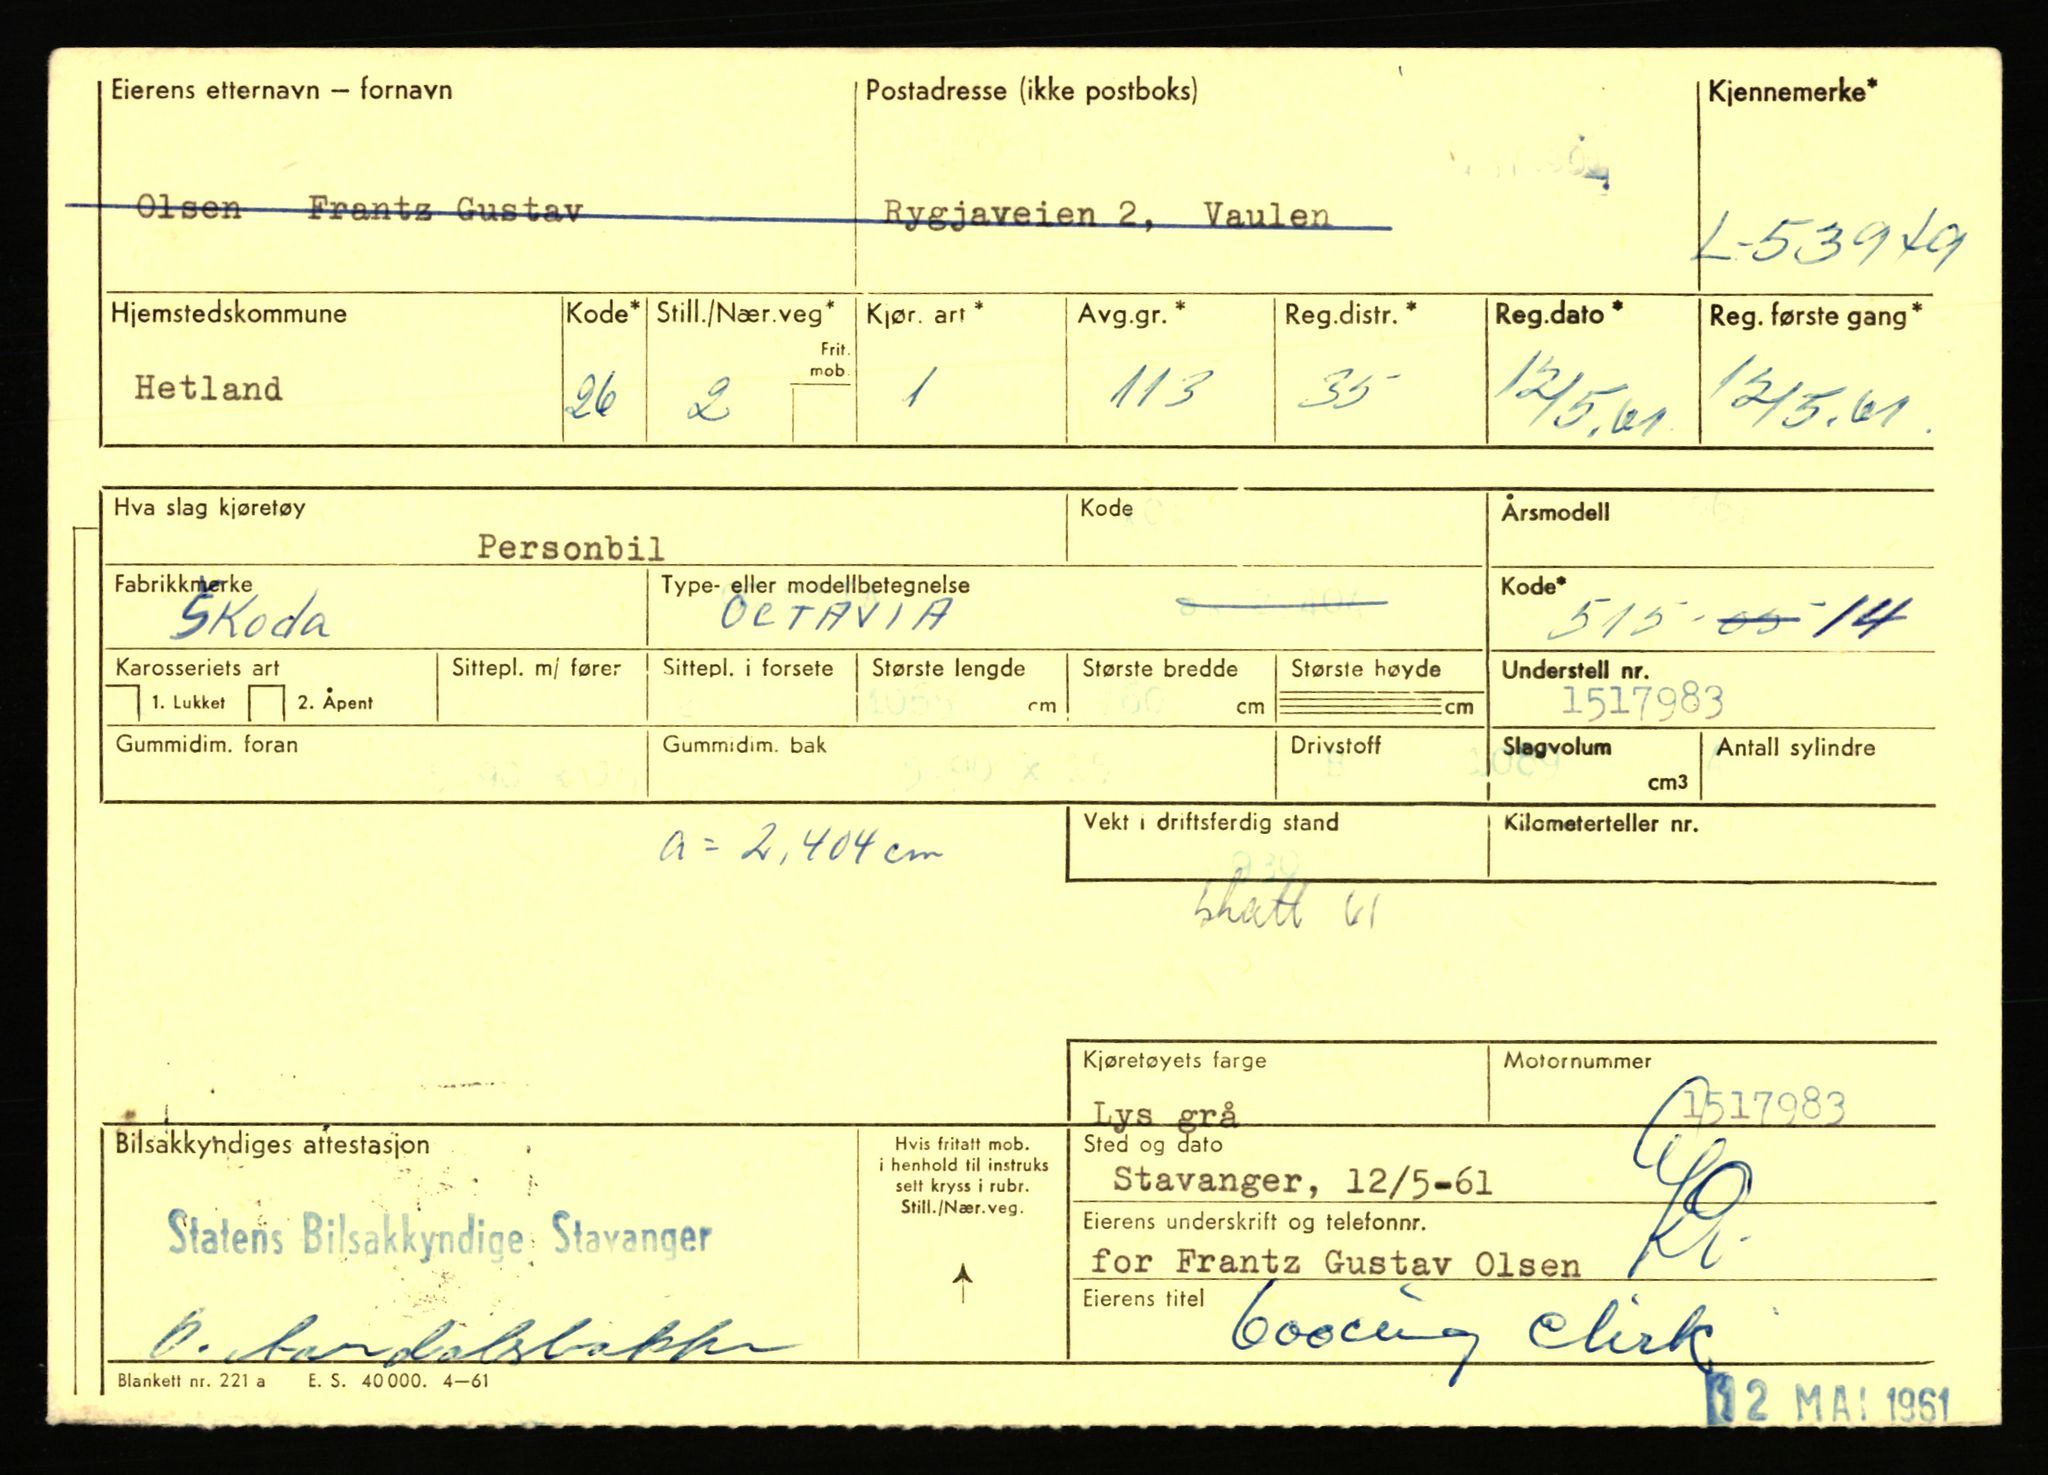 Eierens etternavn – fornavn Postadresse (ikke postboks) Kjennemerke*
Olsen Frantz Gustav Rygjaveien 2, Vaulen L-53949
Hjemstedskommune Kode* Still./Nær.veg* Kjør. art* Avg.gr.* Reg.distr.* Reg.dato* Reg. første gang*
Frit. mob.
Hetland 26 2 1 113 35 12/5.61 12/5.61.
Hva slag kjøretøy Kode Årsmodell
Personbil
Fabrikkmerke Type- eller modellbetegnelse Kode*
Škoda OCTAVIA 515-05-14
Karosseriets art Sittepl. m/ fører Sittepl. i forsete Største lengde Største bredde Største høyde Understell nr.
1. Lukket 2. Åpent cm cm cm 1517983
Gummidim. foran Gummidim. bak Drivstoff Slagvolum Antall sylindre
cm3
Vekt i driftsferdig stand Kilometerteller nr.
a = 2,404 cm
skatt 61
Kjøretøyets farge Motornummer
Lys grå 1517983
Bilsakkyndiges attestasjon
Hvis fritatt mob.
i henhold til instruks
sett kryss i rubr.
Still./Nær.veg.
Sted og dato
Stavanger, 12/5-61
Statens Bilsakkyndige Stavanger
Eierens underskrift og telefonnr.
for Frantz Gustav Olsen
Eierens titel
Blankett nr. 221 a E. S. 40 000. 4–61
12 MAI 1961